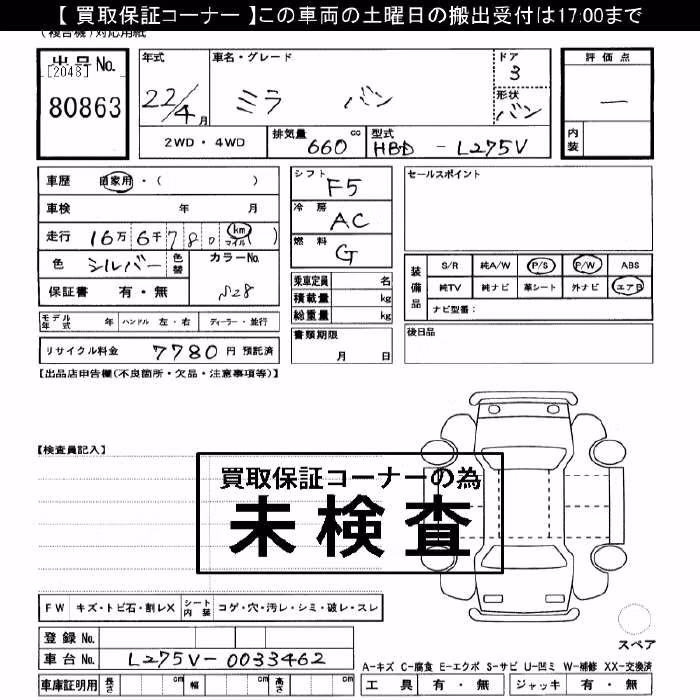 【 買取保証コーナー 】この車両の土曜日の搬出受付は17:00まで
(複合機)対応用紙
出品No. 年式 車名・グレード ドア 評価点
[2048] 3
80863 22/4月 ミラ バン 形状 バン 一
2WD・4WD 排気量 660 cc 型式 HBD - L275V 内装
車歴 自家用・( ) シフト F5 セールスポイント
車検 年 月 冷房 AC
走行 16万6千780 km マイル ( ) 燃料 G
色 シルバー 色替 カラーNo. S28
装備品 S/R 純A/W P/S P/W ABS
保証書 有・無 乗車定員 名 純TV 純ナビ 革シート 外ナビ エアB
積載量 kg ナビ型番:
モデル年式 年 ハンドル 左・右 ディーラー・並行 総重量 kg
リサイクル料金 7780 円 預託済 書類期限 月 日 後日品
【出品店申告欄(不良箇所・欠品・注意事項等)】
【検査員記入】
買取保証コーナーの為
未検査
FW キズ・トビ石・割レX シート内装 コゲ・穴・汚レ・シミ・破レ・スレ
登録No. スペア
車台No. L275V-0033462
A-キズ C-腐食 E-エクボ S-サビ U-凹ミ W-補修 XX-交換済
車庫証明用 長さ cm 幅 cm 高さ cm 工具 有・無 ジャッキ 有・無